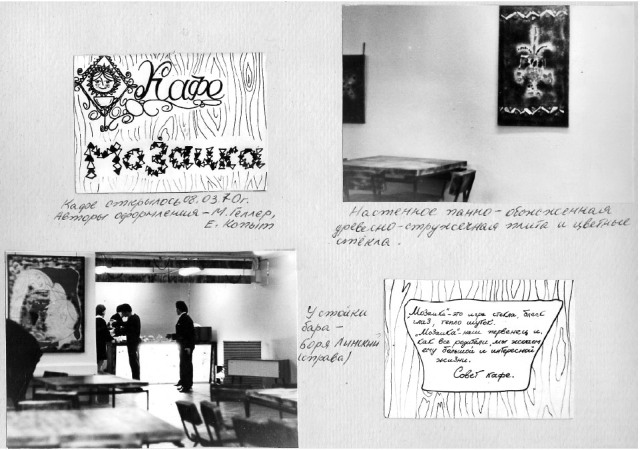 Кафе
Мозаика
Кафе открылось 08.03.70г.
Авторы оформления – М. Геллер,
Е. Копыт
Настенное панно – обожженная
древесно-стружечная плита и цветные
стёкла.
У стойки
бара –
Боря Лынский
(справа)
„Мозаика"-это игра стекла, блеск
глаз, тепло шуток.
„Мозаика"-наш первенец и,
как все родители, мы желаем
ему большой и интересной
жизни.
Совет кафе.